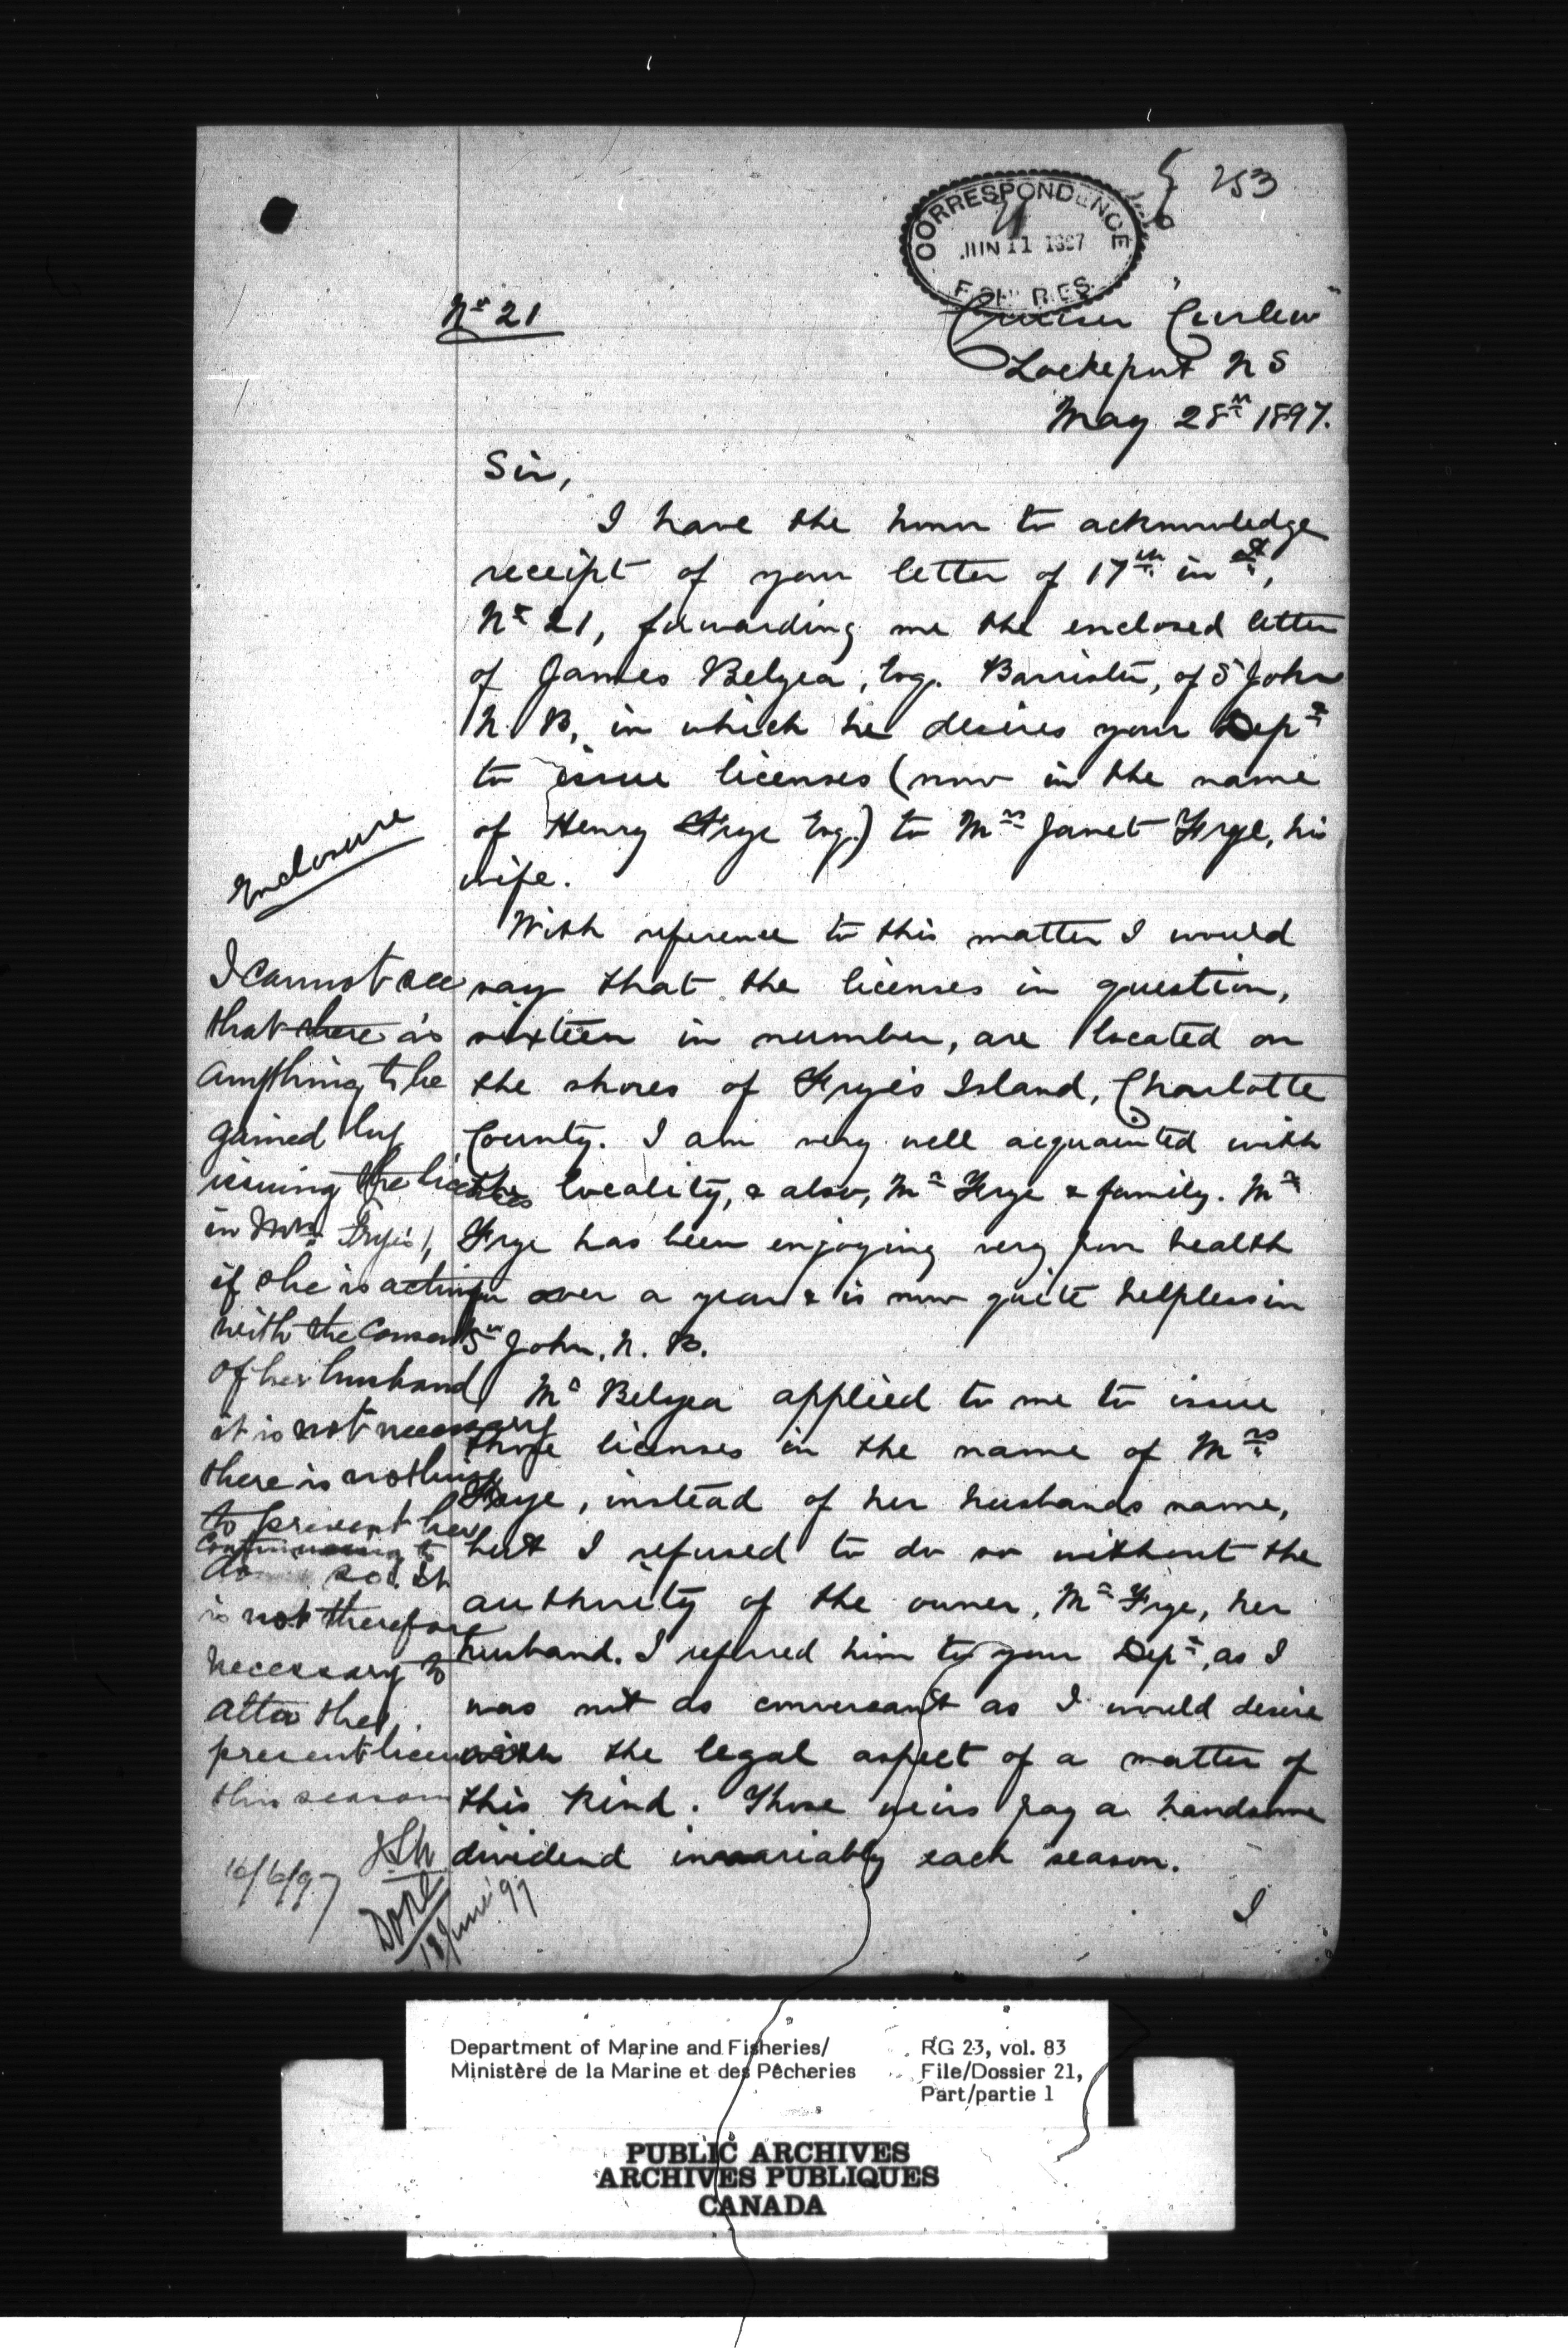 253
CORRESPONDENCE
21
JUN 11 1897
FISHERIES
No 21
Cruiser "Curlew"
Lockeport N S
May 28th 1897.
Sir,
I have the honor to acknowledge
receipt of your letter of 17th inst,
No 21, forwarding me the enclosed letter
of James Belyea, Esq. Barrister, of St John
N. B, in which he desires your Dept
to issue licenses (now in the name
of Henry Frye Esq.) to Mrs Janet Frye, his
wife.
With reference to this matter I would
say that the licenses in question,
sixteen in number, are located on
the shores of Frye's Island, Charlotte
County. I am very well acquainted with
the locality, & also, Mr Frye & family. Mr
Frye has been enjoying very poor health
for over a year & is now quite helpless in
St John, N. B.
Mr Belyea applied to me to issue
those licenses in the name of Mrs
Frye, instead of her husbands name,
but I refused to do so without the
authority of the owner, Mr Frye, her
husband. I referred him to your Dept, as I
was not as conversant as I would desire
with the legal aspect of a matter of
this kind. Those weirs pay a handsome
dividend invariably each season.
I
Enclosure
I cannot see
that there is
anything to be
gained by
issuing the licenses
in Mrs. Frye's,
if she is acting
with the consent
of her husband
it is not necessary
there is nothing
to prevent her
continuing to
do so. It
is not therefore
necessary to
alter the
present licenses
this season
16/6/97
Done
18 June '97
Department of Marine and Fisheries/
Ministère de la Marine et des Pêcheries
RG 23, vol. 83
File/Dossier 21,
Part/partie 1
PUBLIC ARCHIVES
ARCHIVES PUBLIQUES
CANADA